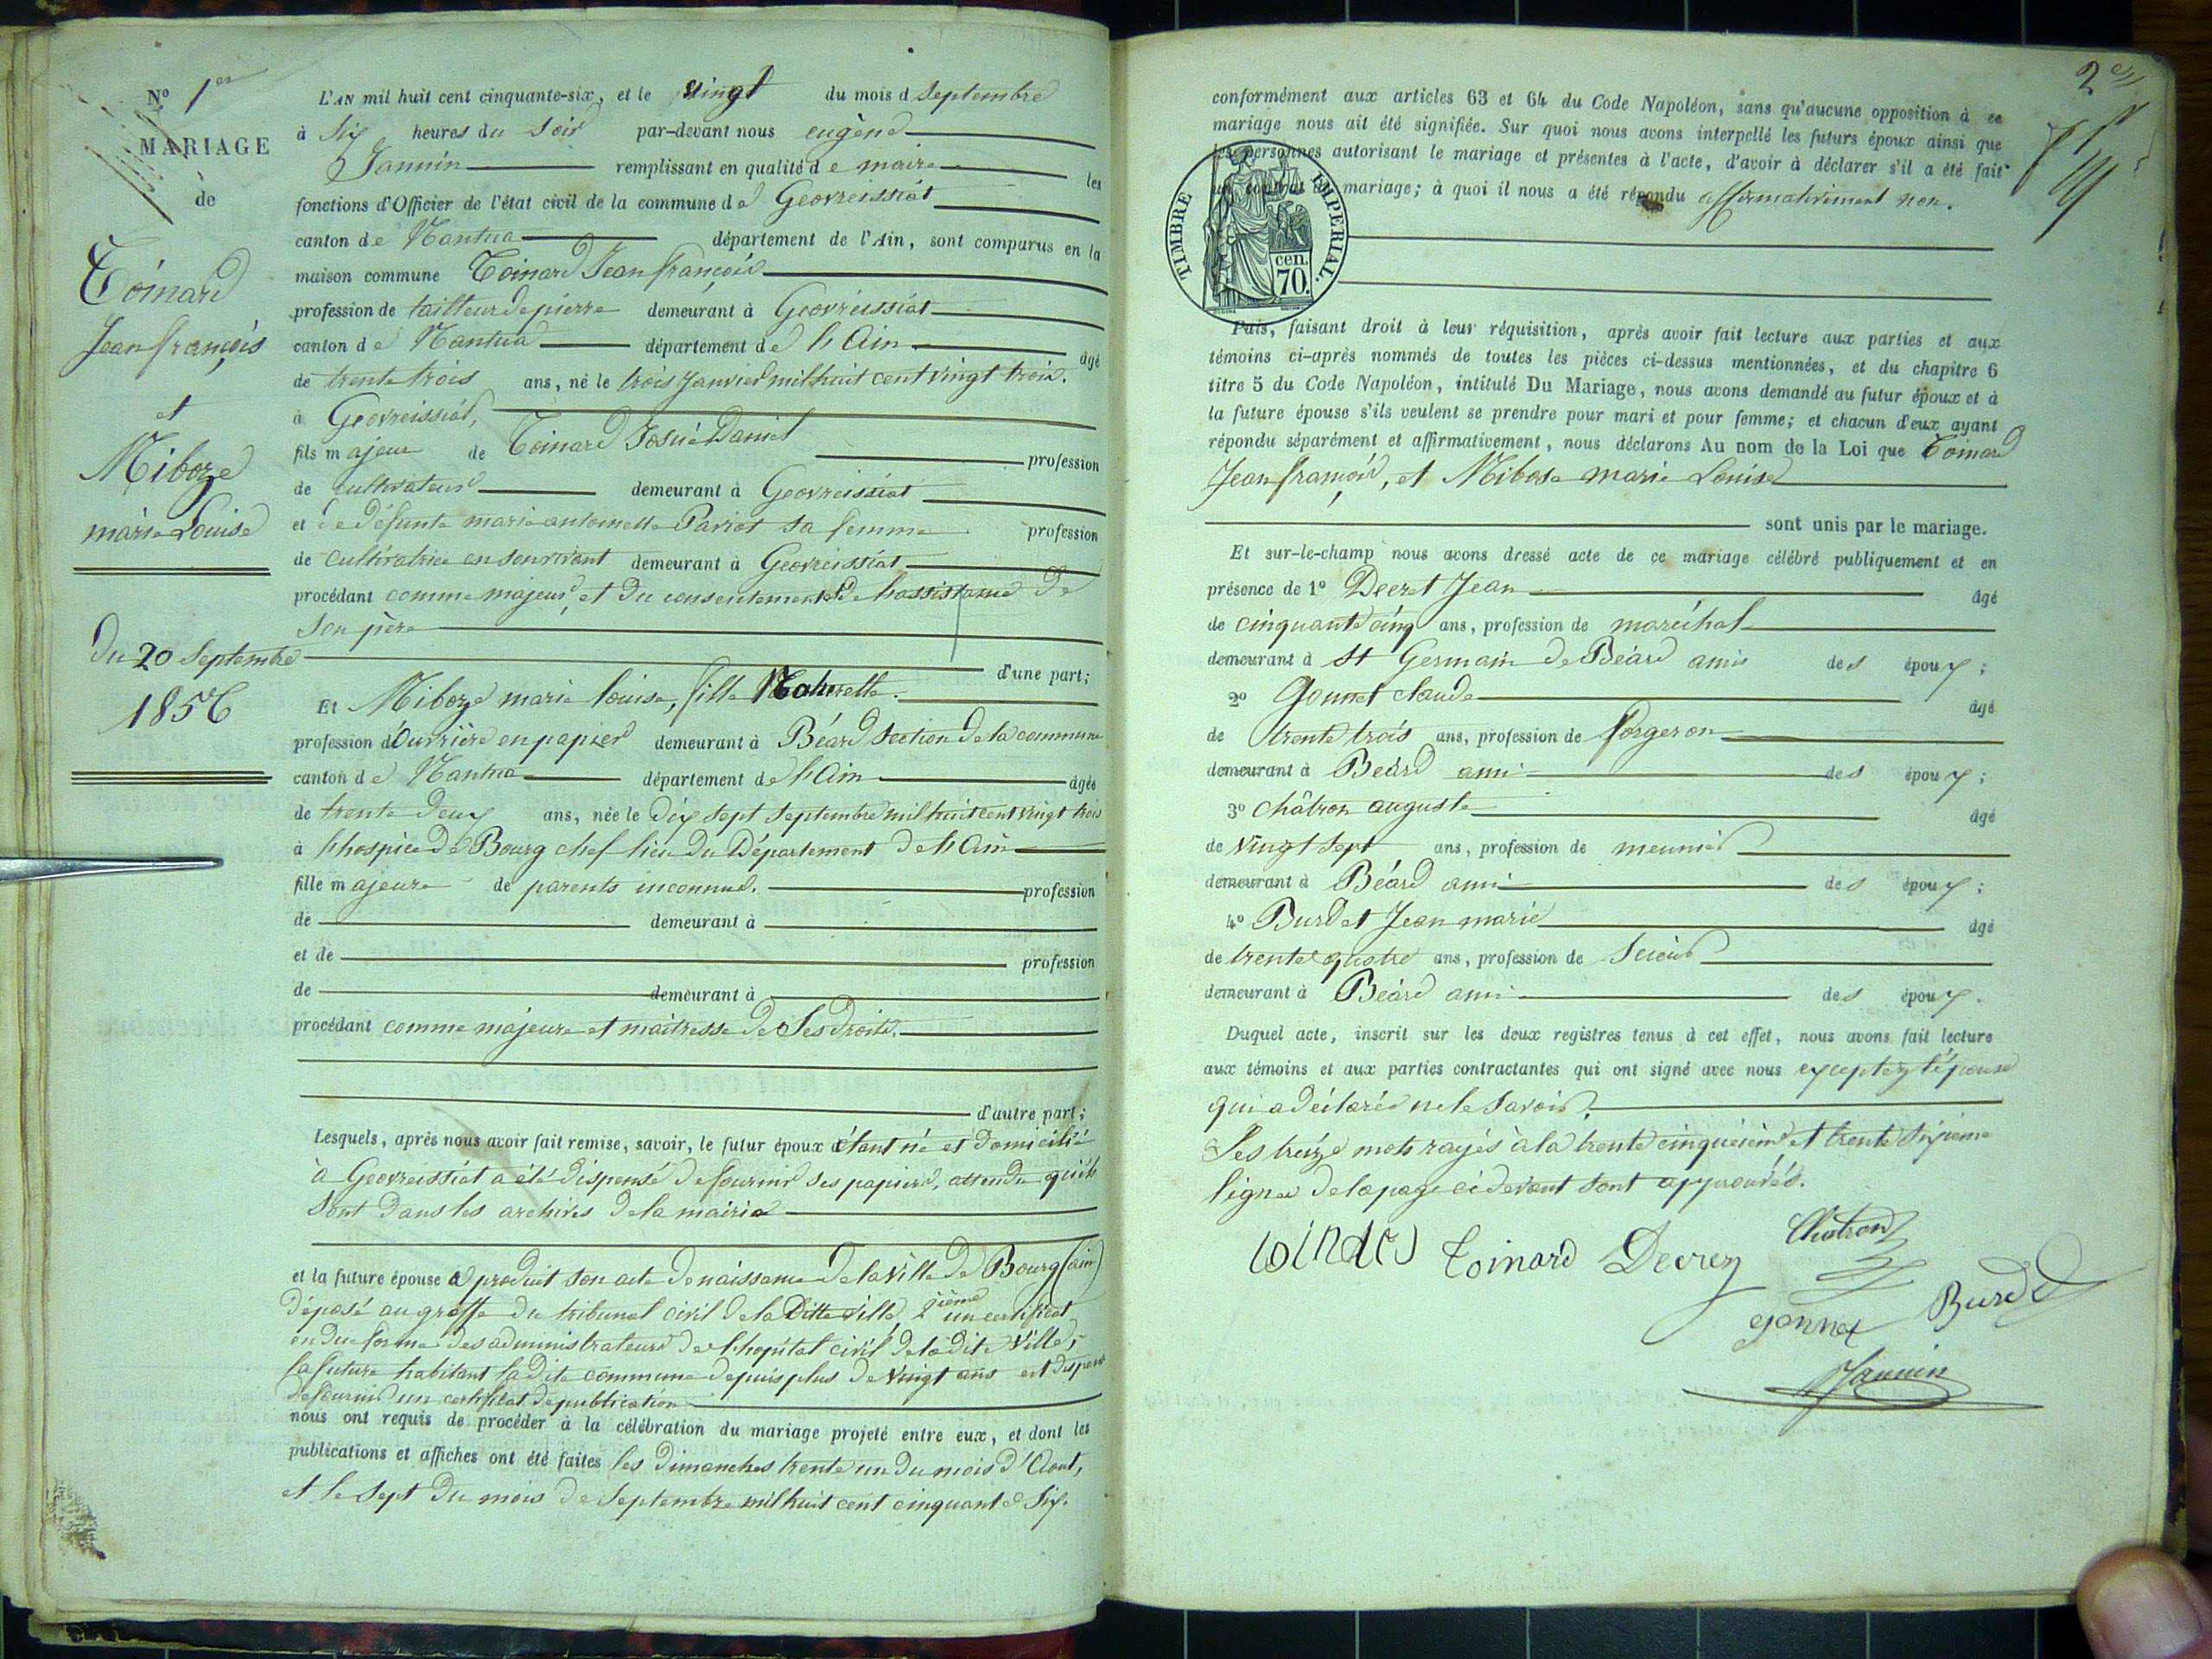 N° 1er
MARIAGE
de
Toinard
Jean françois
et
Niboze
marie Louise
du 20 Septembre
1856
L'AN mil huit cent cinquante-six, et le vingt du mois d Septembre
à Six heures du Soir par-devant nous eugène
Jannin remplissant en qualité de maire les
fonctions d'Officier de l'état civil de la commune de Geovreissiat
canton de Nantua département de l'Ain, sont comparus en la
maison commune Toinard Jean françois
profession de tailleur de pierre demeurant à Geovreissiat
canton de Nantua département de l'Ain âgé
de trente trois ans, né le trois Janvier mil huit cent vingt trois.
à Geovreissiat,
fils majeur de Toinard Josué Daniel profession
de cultivateur demeurant à Geovreissiat
et de défunte marie antoinette Pariot sa femme profession
de cultivatrice en son vivant demeurant à Geovreissiat
procédant comme majeur, et du consentement et de l'assistance de
son père
d'une part;
Et Niboze marie louise, fille Naturelle.
profession d'Ouvrière en papier demeurant à Béard Section de la commune
canton de Nantua département de l'Ain âgée
de trente deux ans, née le dix sept Septembre mil huit cent vingt trois
à l'hospice de Bourg chef lieu du Département de l'Ain
fille majeure de parents inconnus. profession
de demeurant à
et de profession
de demeurant à
procédant comme majeure et maîtresse de Ses droits.
d'autre part;
Lesquels, après nous avoir fait remise, savoir, le futur époux étant né et domicilié
à Geovreissiat a été dispensé de fournir ses papiers, attendu qu'ils
sont dans les archives de la mairie
et la future épouse a produit son acte de naissance de la ville de Bourg (ain)
déposé au greffe du tribunal civil de la ditte ville, 2ième un certificat
en due forme des administrateurs de l'hopital civil de la dite Ville,
la future habitant la dite commune depuis plus de vingt ans est dispensé
de fournir un certificat de publication
nous ont requis de procéder à la célébration du mariage projeté entre eux, et dont les
publications et affiches ont été faites les dimanches trente un du mois d'Aout,
et le sept du mois de Septembre mil huit cent cinquante Six.
2e
conformément aux articles 63 et 64 du Code Napoléon, sans qu'aucune opposition à ce
mariage nous ait été signifiée. Sur quoi nous avons interpellé les futurs époux ainsi que
les personnes autorisant le mariage et présentes à l'acte, d'avoir à déclarer s'il a été fait
un contrat de mariage; à quoi il nous a été répondu affirmativement non.
TIMBRE IMPERIAL.
cen.
70.
Puis, faisant droit à leur réquisition, après avoir fait lecture aux parties et aux
témoins ci-après nommés de toutes les pièces ci-dessus mentionnées, et du chapitre 6
titre 5 du Code Napoléon, intitulé Du Mariage, nous avons demandé au futur époux et à
la future épouse s'ils veulent se prendre pour mari et pour femme; et chacun d'eux ayant
répondu séparément et affirmativement, nous déclarons Au nom de la Loi que Toinard
Jean françois, et Nibose marie Louise
sont unis par le mariage.
Et sur-le-champ nous avons dressé acte de ce mariage célébré publiquement et en
présence de 1° Decret Jean âgé
de cinquante cinq ans, profession de maréchal
demeurant à St Germain de Béard amis des époux;
2° Gonnet claude âgé
de trente trois ans, profession de forgeron
demeurant à Béard ami des époux;
3° châtron auguste âgé
de vingt sept ans, profession de meunier
demeurant à Béard ami des époux;
4° Burdet Jean marie âgé
de trente quatre ans, profession de Scieur
demeurant à Béard ami des époux.
Duquel acte, inscrit sur les deux registres tenus à cet effet, nous avons fait lecture
aux témoins et aux parties contractantes qui ont signé avec nous exceptez l'épouse
qui a déclaré ne le savoir.
Les treize mots rayés à la trente cinquième et trente sixième
lignes de la page ci devant sont approuvés.
Toinard Decrey Chatron
gonnet Burdet
Jannin